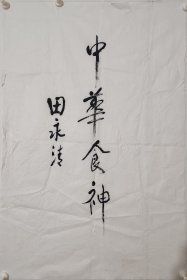 中華食神
田永清